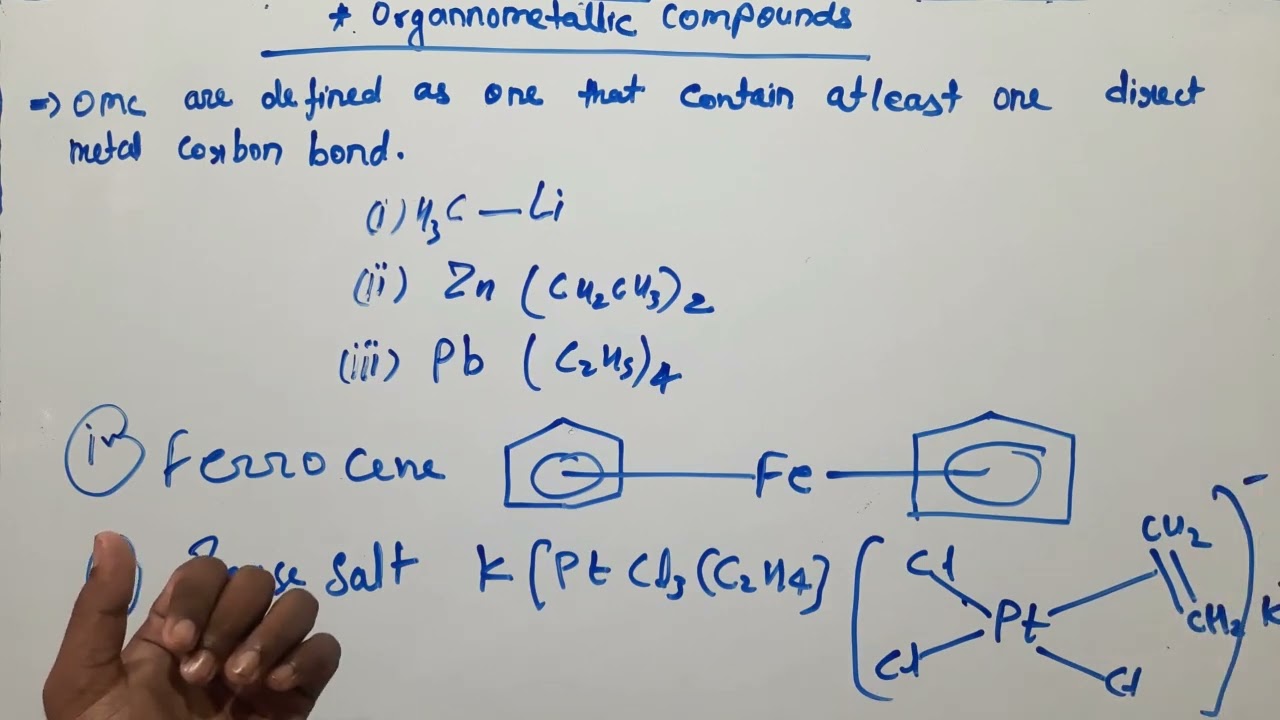 * Organnometallic compounds
=> OMC are defined as one that contain atleast one direct
metal carbon bond.
(i) H₃C — Li
(ii) Zn (CH₂CH₃)₂
(iii) Pb (C₂H₅)₄
iv Ferrocene Fe
salt K[PtCl₃(C₂H4] [Cl Cl Pt Cl CH₂ = CH₂]⁻ K